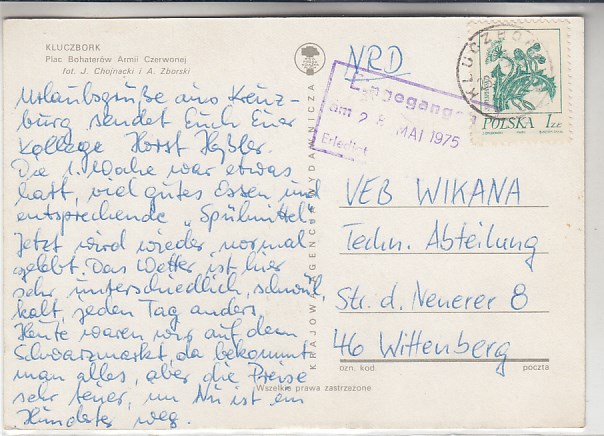 KLUCZBORK
Plac Bohaterów Armii Czerwonej
fot. J. Chojnacki i A. Zborski
Urlaubsgrüße aus Kreuz-
burg sendet Euch Euer
Kollege Horst
Die 1. Woche war etwas
hart, viel gutes Essen und
entsprechende „Spülmittel“
Jetzt wird wieder normal
gelebt. Das Wetter ist hier
sehr unterschiedlich, schwül,
kalt, jeden Tag anders.
Heute waren wir auf dem
Schwarzmarkt, da bekommt
man alles, aber die Preise
sehr teuer, im Nu ist ein
Hunderter weg.
KRAJOWA AGENCJA WYDAWNICZA
Wszelkie prawa zastrzeżone
NRD
Eingegangen
am 28. MAI 1975
Erledigt
KLUCZBORK
POLSKA 1ZŁ
VEB WIKANA
Techn. Abteilung
Str. d. Neuerer 8
46 Wittenberg
ozn. kod. poczta